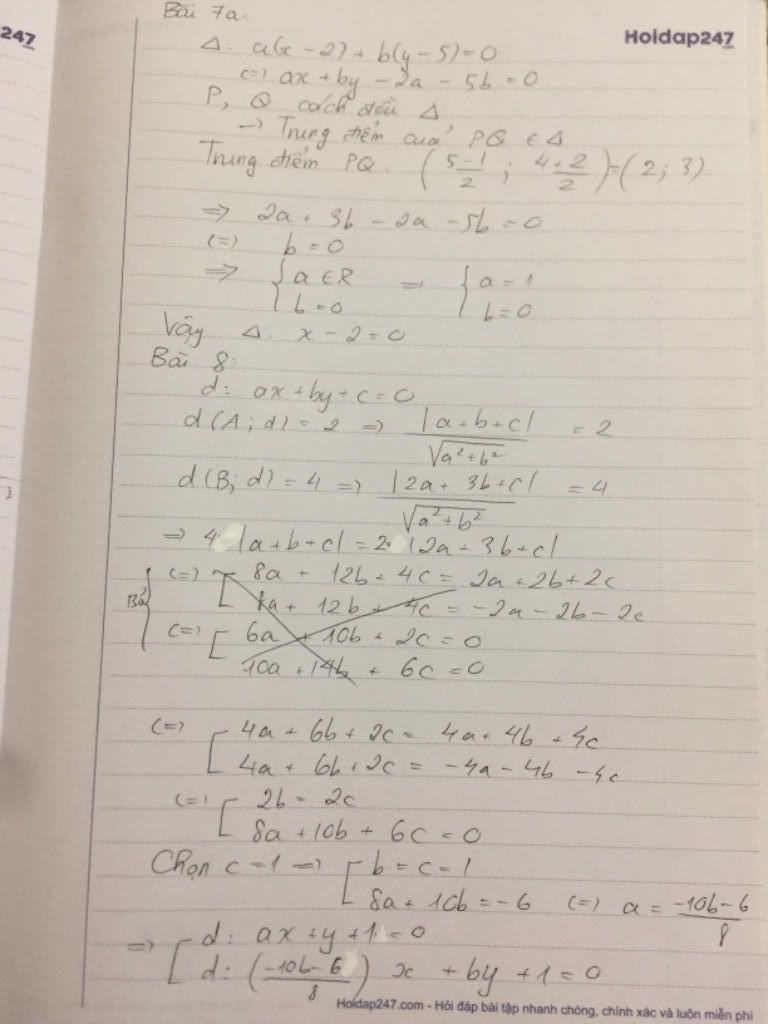 Bài 7a.
247
Hoidap247
Δ: a(x - 2) + b(y - 5) = 0
<=> ax + by - 2a - 5b = 0
P, Q cách đều Δ
→ Trung điểm của PQ ∈ Δ
Trung điểm PQ. (5-1/2 ; 4+2/2) = (2; 3)
=> 2a + 3b - 2a - 5b = 0
<=> b = 0
=> { a ∈ R b = 0 → { a = 1 b = 0
Vậy Δ: x - 2 = 0
Bài 8:
d: ax + by + c = 0
d(A; d) = 2 => |a + b + c| / √a² + b² = 2
d(B; d) = 4 => |2a + 3b + c| / √a² + b² = 4
=> 4. |a + b + c| = 2. |2a + 3b + c|
Bỏ { <=> [ 8a + 12b + 4c = 2a + 2b + 2c
8a + 12b + 4c = -2a - 2b - 2c
<=> [ 6a + 10b + 2c = 0
10a + 14b + 6c = 0
<=> [ 4a + 6b + 2c = 4a + 4b + 4c
4a + 6b + 2c = -4a - 4b - 4c
<=> [ 2b = 2c
8a + 10b + 6c = 0
Chọn c = 1 => [ b = c = 1
8a + 10b = -6 <=> a = -10b - 6 / 8
=> [ d: ax + y + 1 = 0
d: (-10b - 6 / 8) x + by + 1 = 0
Hoidap247.com - Hỏi đáp bài tập nhanh chóng, chính xác và luôn miễn phí